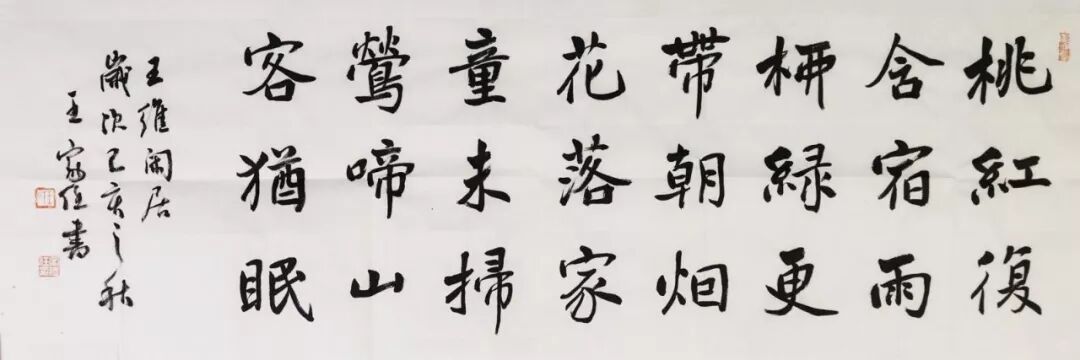 桃紅復
含宿雨
柳緑更
帶朝烟
花落家
童未掃
鶯啼山
客猶眠
王維閑居
歲次己亥之秋
王家恒書